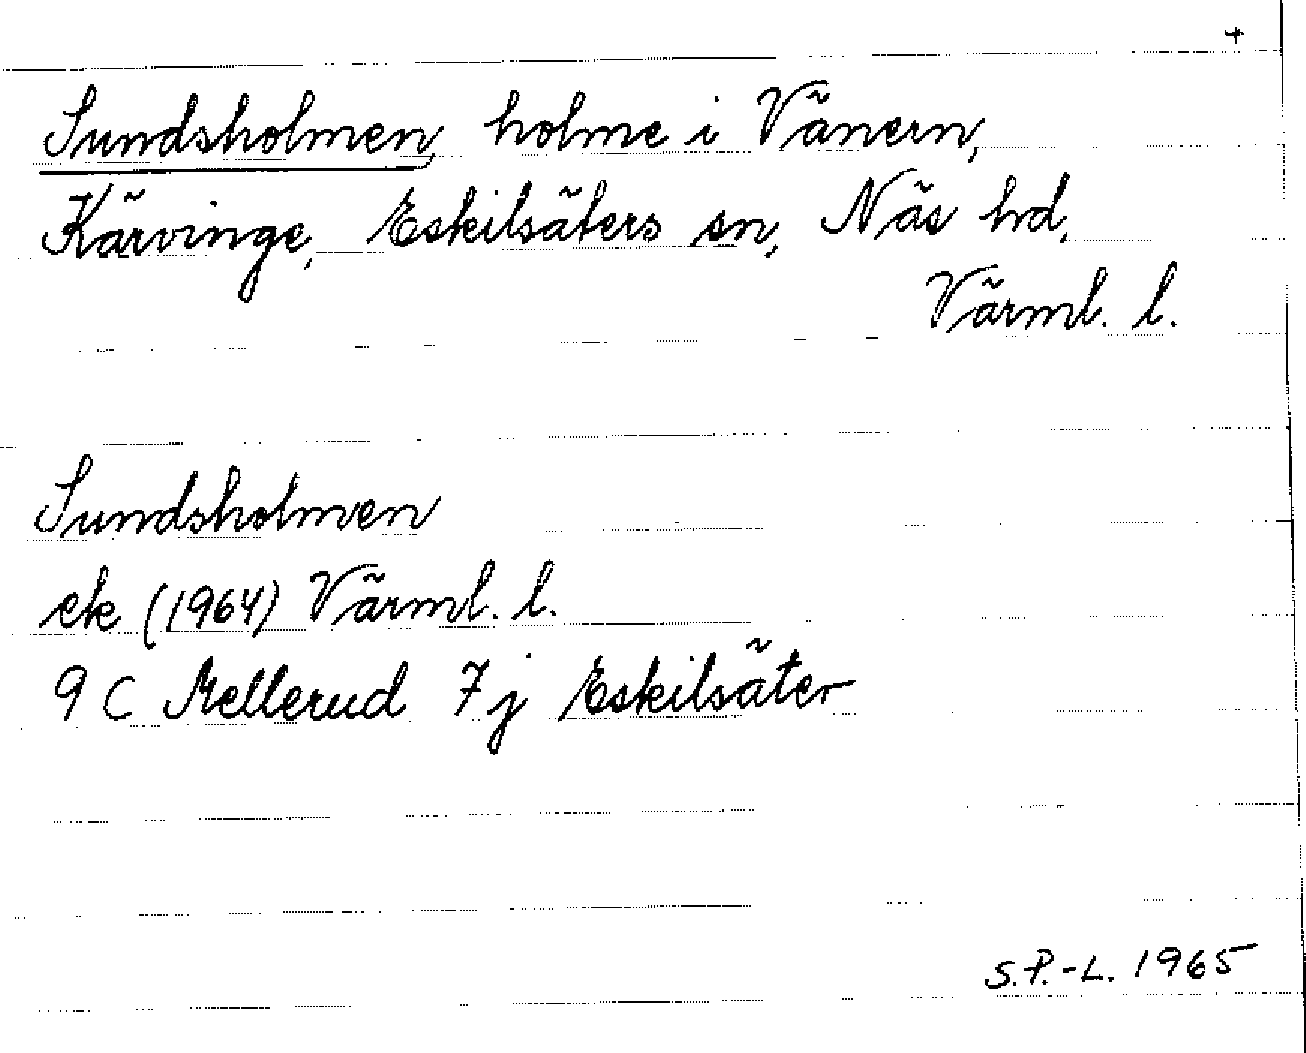 +
Sundsholmen, holme i Vänern,
Kärvinge, Eskilsäters sn, Näs hd,
Värml. l.
Sundsholmen
ek (1964) Värml. l.
9 C Mellerud 7j Eskilsäter
S.P.-L. 1965